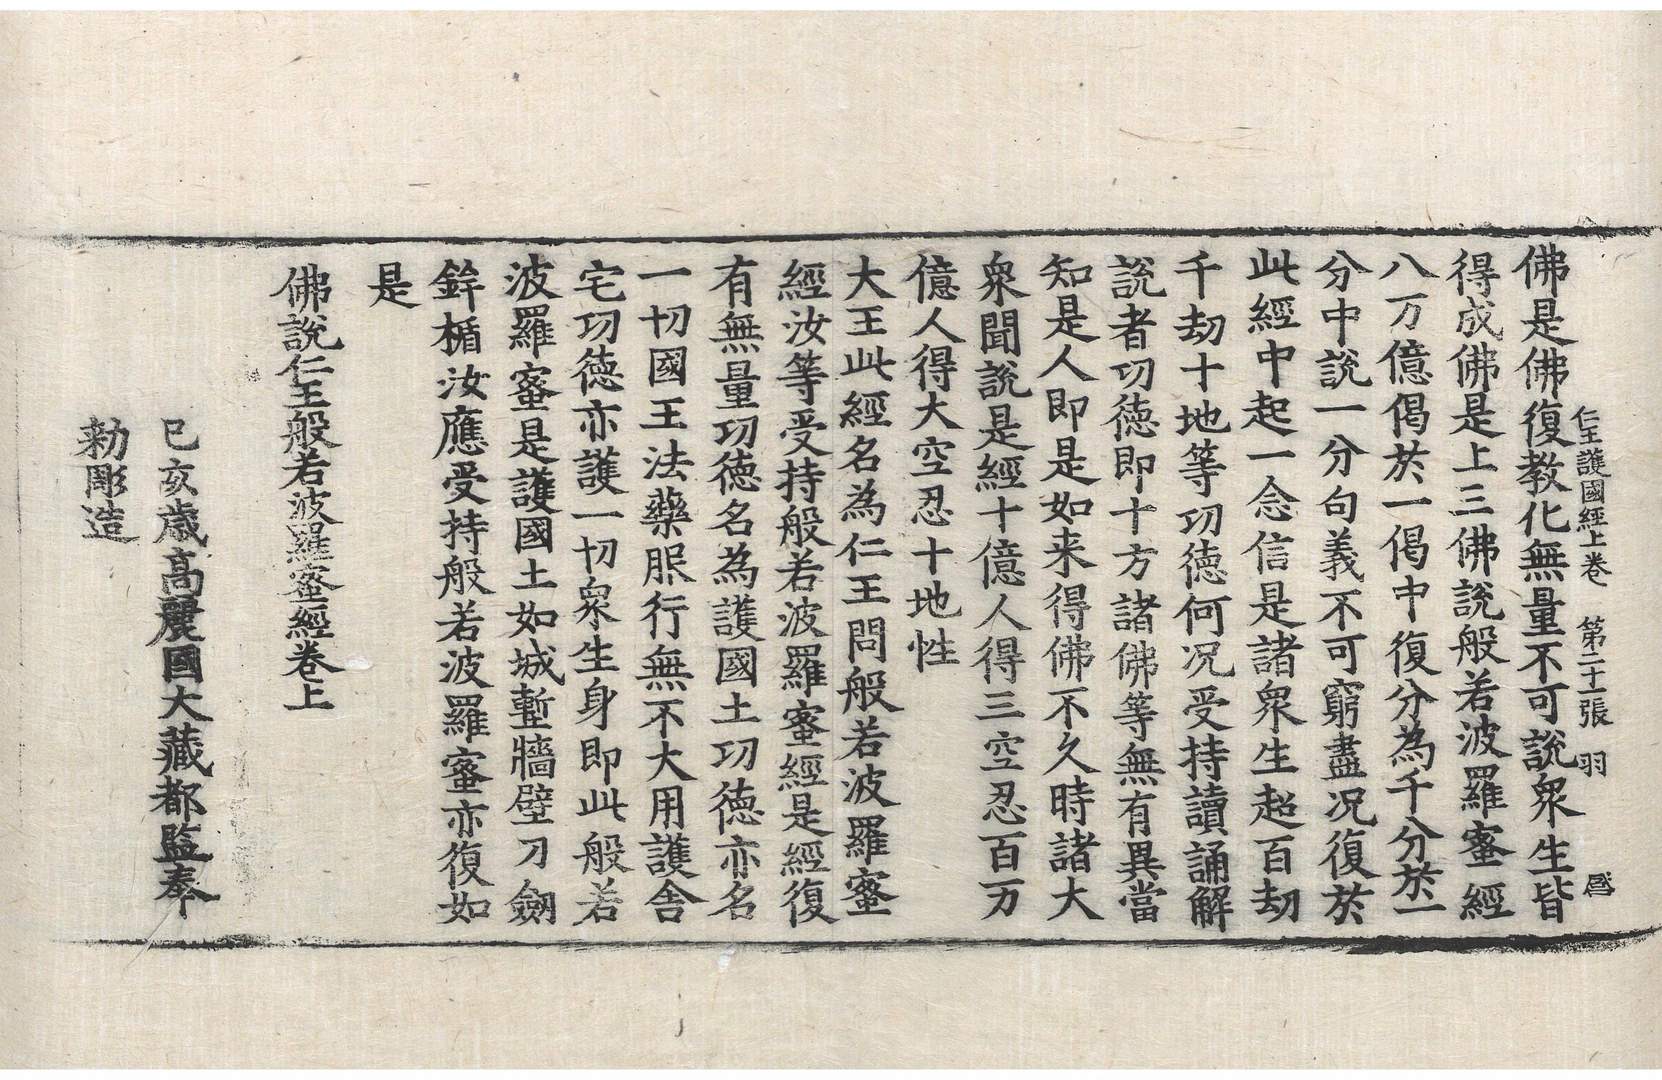 仁王護國經上卷 第二十一張 羽
佛是佛復教化無量不可說衆生皆
得成佛是上三佛說般若波羅蜜經
八万億偈於一偈中復分為千分於一
分中說一分句義不可窮盡况復於
此經中起一念信是諸衆生超百劫
千劫十地等功德何况受持讀誦解
說者功德即十方諸佛等無有異當
知是人即是如来得佛不久時諸大
衆聞說是經十億人得三空忍百万
億人得大空忍十地性
大王此經名為仁王問般若波羅蜜
經汝等受持般若波羅蜜經是經復
有無量功德名為護國土功德亦名
一切國王法藥服行無不大用護舍
宅功德亦護一切衆生身即此般若
波羅蜜是護國土如城塹牆壁刀劒
鉾楯汝應受持般若波羅蜜亦復如
是
佛說仁王般若波羅蜜經卷上
己亥歲高麗國大藏都監奉
勅彫造